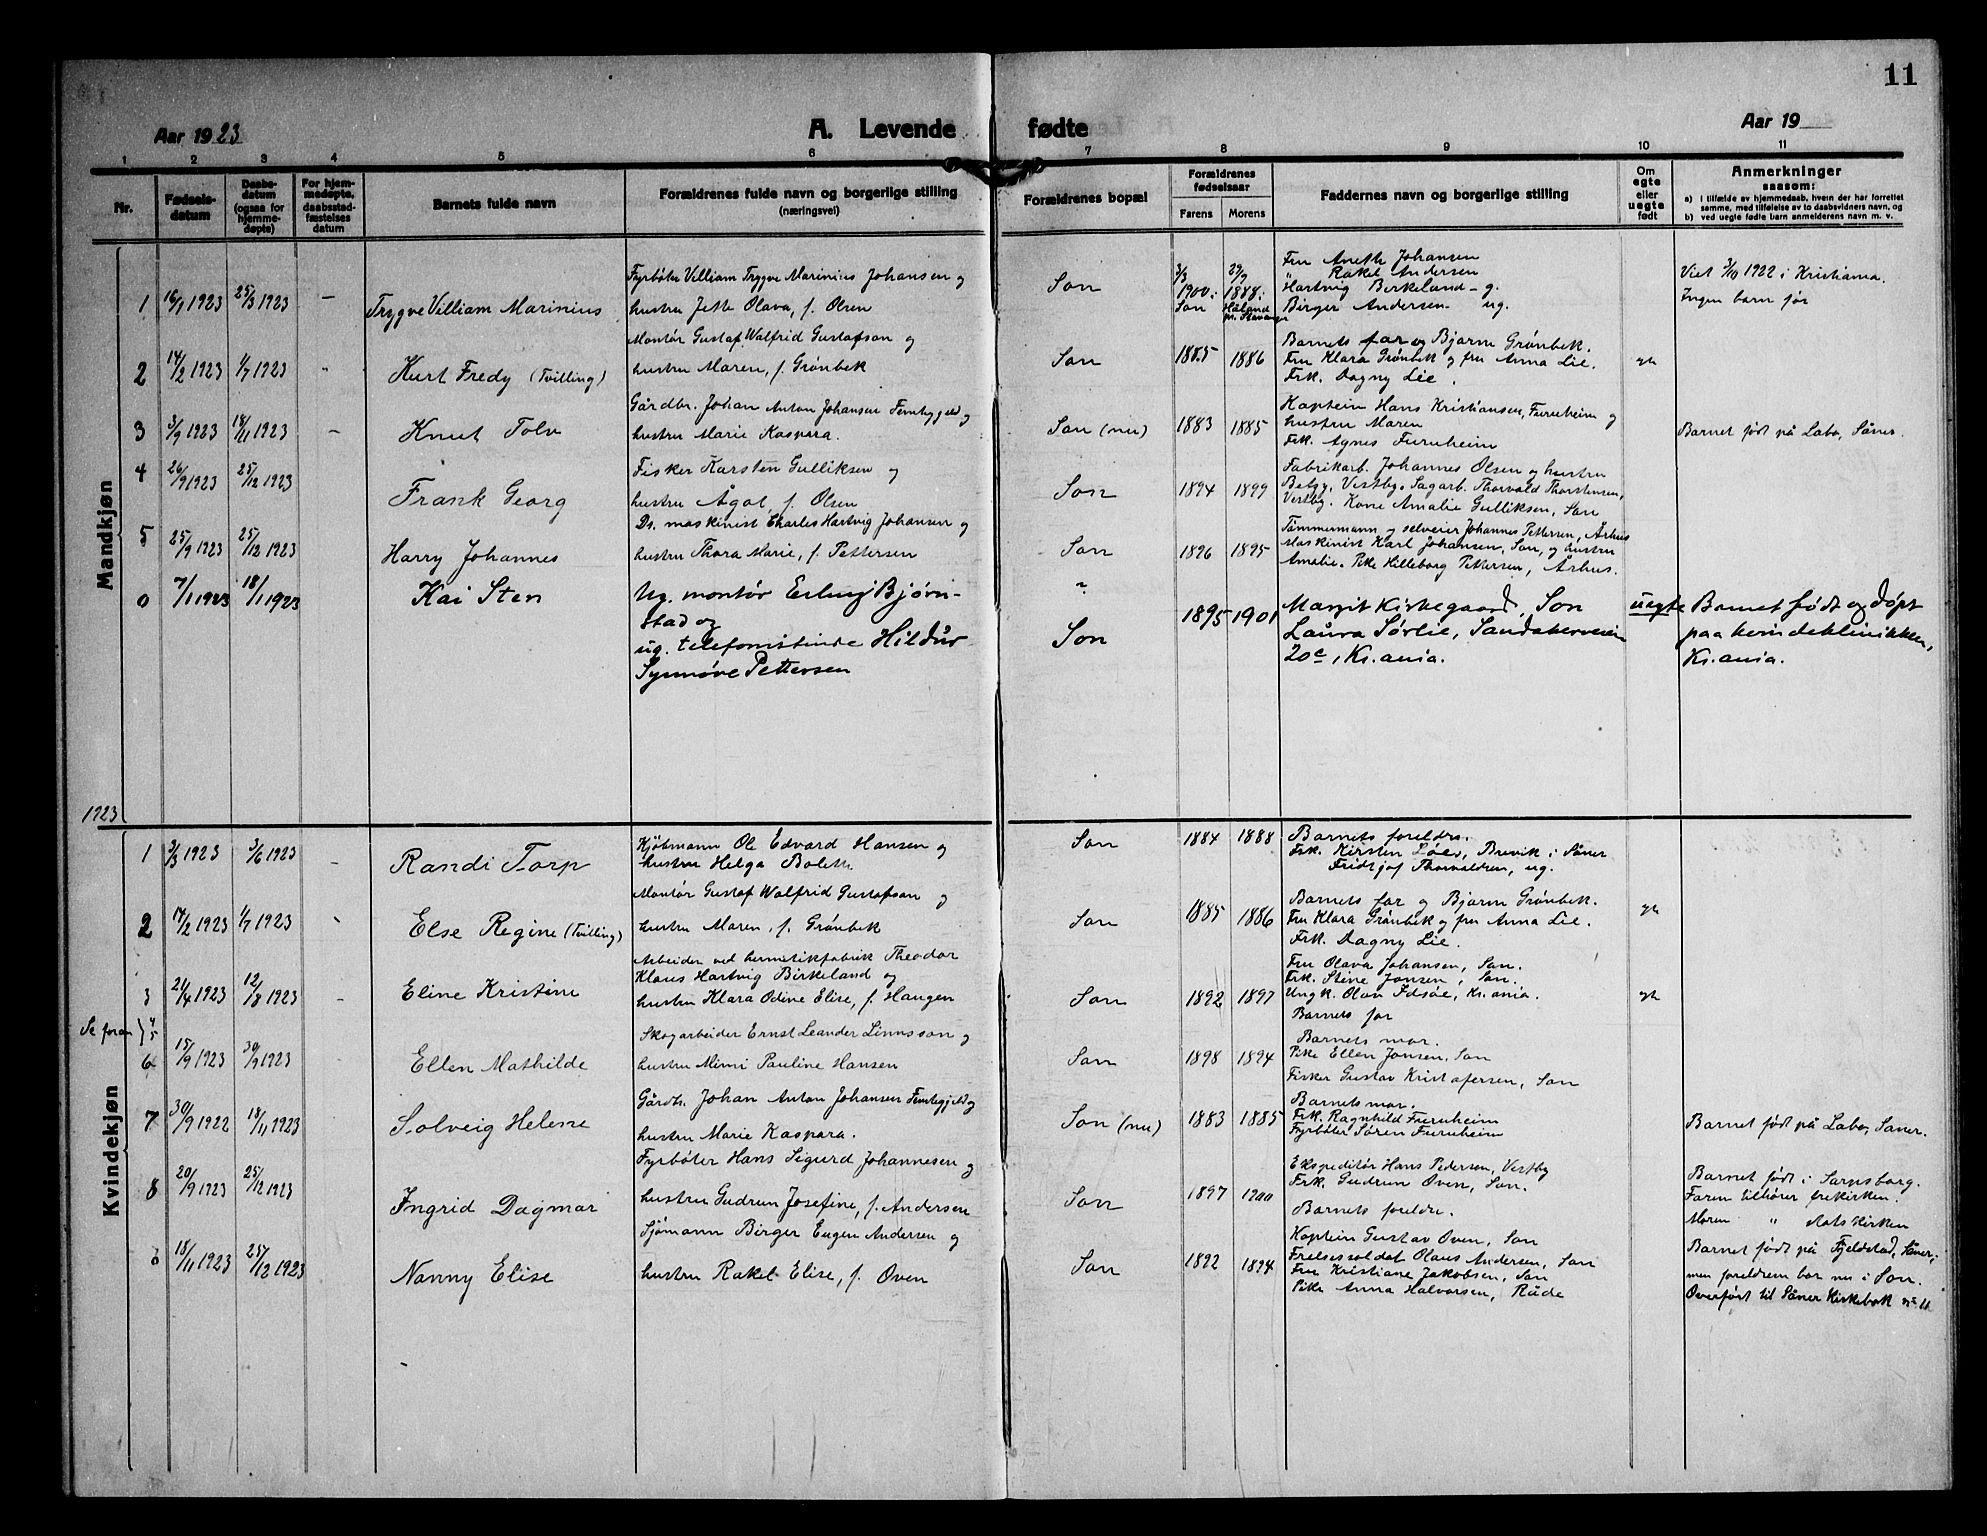 11
Aar 1923
A. Levende fødte
Aar 19
1 2 3 4 5 6 7 8 9 10 11
Nr.
Fødsels-
datum
Daabs-
datum
(ogsaa for
hjemme-
døpte)
For hjem-
medøpte,
daabsstad-
fæstelses
datum
Barnets fulde navn
Forældrenes fulde navn og borgerlige stilling
(næringsvei)
Forældrenes bopæl
Forældrenes
fødselsaar
Farens Morens
Faddernes navn og borgerlige stilling
Om
egte
eller
uegte
født
Anmerkninger
saasom:
a) i tilfælde av hjemmedaab, hvem der har forrettet
samme, med tilføielse av to daabsvidners navn, og
b) ved uegte fødte barn anmelderens navn m. v.
Mandkjøn
1 16/1 1923 25/3 1923 –
Trygve Villiam Marinius
Fyrbøter Villiam Trygve Marinius Johansen og
hustru Jette Olava, f. Olsen
Son
3/3 1900 i Son
29/9 1888 i Håland pr. Stavanger
Fru Aneth Johansen
" Rakel Andersen
Hartvig Birkeland – g.
Birger Andersen – ug.
Viet 3/10 1922 i Kristiania.
Ingen barn før
2 14/2 1923 1/7 1923 "
Kurt Fredy (Tvilling)
Montør Gustaf Walfrid Gustafson og
hustru Maren, f. Grønbek
Son
1885 1886
Barnets far og Bjarne Grønbek.
Fru Klara Grønbek og fru Anna Lie.
Frk. Dagny Lie.
gte
3 3/9 1923 18/11 1923 –
Knut Tolv
Gårdbr. Johan Anton Johansen Femhygjeld og
hustru Marie Kaspara.
Son (nu)
1883 1885
Kaptein Hans Kristiansen, Furuheim og
hustru Maren
Frk. Agnes Furuheim
Barnet født på Labo, Såner.
4 26/9 1923 25/12 1923
Frank Georg
Fisker Karsten Gulliksen og
hustru Ågot, f. Olsen
Son
1894 1899
Fabrikarb. Johannes Olsen og hustru
Betzy, Vestby. Sagarb. Thorvald Thorstensen,
Vestby. Kone Amalie Gulliksen, Son
5 25/9 1923 25/12 1923
Harry Johannes
Ds. maskinist Charles Hartvig Johansen og
hustru Thora Marie, f. Pettersen
Son
1896 1895
Tømmermann og selveier Johannes Pettersen, Århus
Maskinist Karl Johansen, Son, og hustru
Amalie. Pike Hilleborg Pettersen, Århus.
0 7/1 1923 18/1 1923
Kai Sten
Ug. montør Erling Bjørn-
stad og
ug. telefonistinde Hildur
Synnøve Pettersen
"
Son
1895 1901
Margit Kirkegaard, Son
Laura Sørlie, Sandakerveien
20c, Kr.ania.
uegte
Barnet født og døpt
paa kvindeklinikken,
Kr.ania.
1923
Kvindekjøn
1 3/3 1923 3/6 1923 –
Randi Torp
Kjøbmann Ole Edvard Hansen og
hustru Helga Bolette
Son
1884 1888
Barnets foreldre.
Frk. Kirsten Løes, Brevik i Såner
Fridtjof Thorvaldsen, ug.
2 14/2 1923 1/7 1923 –
Else Regine (Tvilling)
Montør Gustaf Walfrid Gustafson og
hustru Maren, f. Grønbek
Son
1885 1886
Barnets far og Bjarne Grønbek.
Fru Klara Grønbek og fru Anna Lie.
Frk. Dagny Lie.
gte
3 21/4 1923 12/8 1923 –
Eline Kristine
Arbeider ved hermetikfabrik Theodor
Klaus Hartvig Birkeland og
hustru Klara Odine Elise, f. Haugen
Son
1892 1897
Fru Olava Johansen, Son.
Frk. Stine Jonsen, Son.
Ungk. Olav Idsøe, Kr.ania.
Barnets far
gte
Se foran } 4 5
6 15/9 1923 30/9 1923
Ellen Mathilde
Skogarbeider Ernst Leander Linnsson og
hustru Mimi Pauline Hansen
Son
1898 1894
Barnets mor.
Pike Ellen Jonsen, Son
Fisker Gustav Kristofersen, Son
7 30/9 1922 18/11 1923
Solveig Helene
Gårdbr. Johan Anton Johansen Femhygjeld og
hustru Marie Kaspara.
Son (nu)
1883 1885
Barnets mor.
Frk. Ragnhild Furuheim
Fyrbøter Søren Furuheim
Barnet født på Labo, Såner.
8 20/9 1923 25/12 1923
Ingrid Dagmar
Fyrbøter Hans Sigurd Johannesen og
hustru Gudrun Josefine, f. Andersen
Son
1897 1900
Ekspeditør Hans Pedersen, Vestby
Frk. Gudrun Oven, Son.
Barnets foreldre.
Barnet født i Sarpsborg.
Faren tilhører frikirken.
Moren " statskirken
0 18/11 1923 25/12 1923
Nanny Elise
Sjømann Birger Eugen Andersen og
hustru Rakel Elise, f. Oven
Son
1892 1894
Kaptein Gustav Oven, Son
Frelsessoldat Olaus Andersen, Son
Fru Kristiane Jakobsen, Son
Pike Anna Halvorsen, Råde
Barnet født på Fjeldstad, Såner;
men foreldrene bor nu i Son.
Overført til Såner Kirkebok